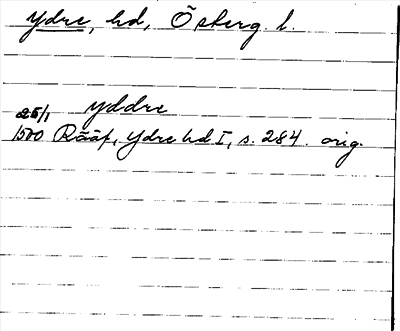 Ydre, hd, Österg. l.
yddre
25/1
1500 Rääf, Ydre hd I, s. 284. orig.